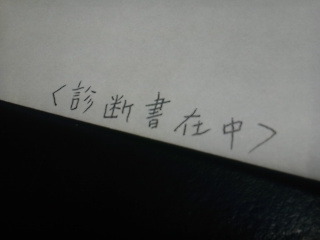 <診断書在中>